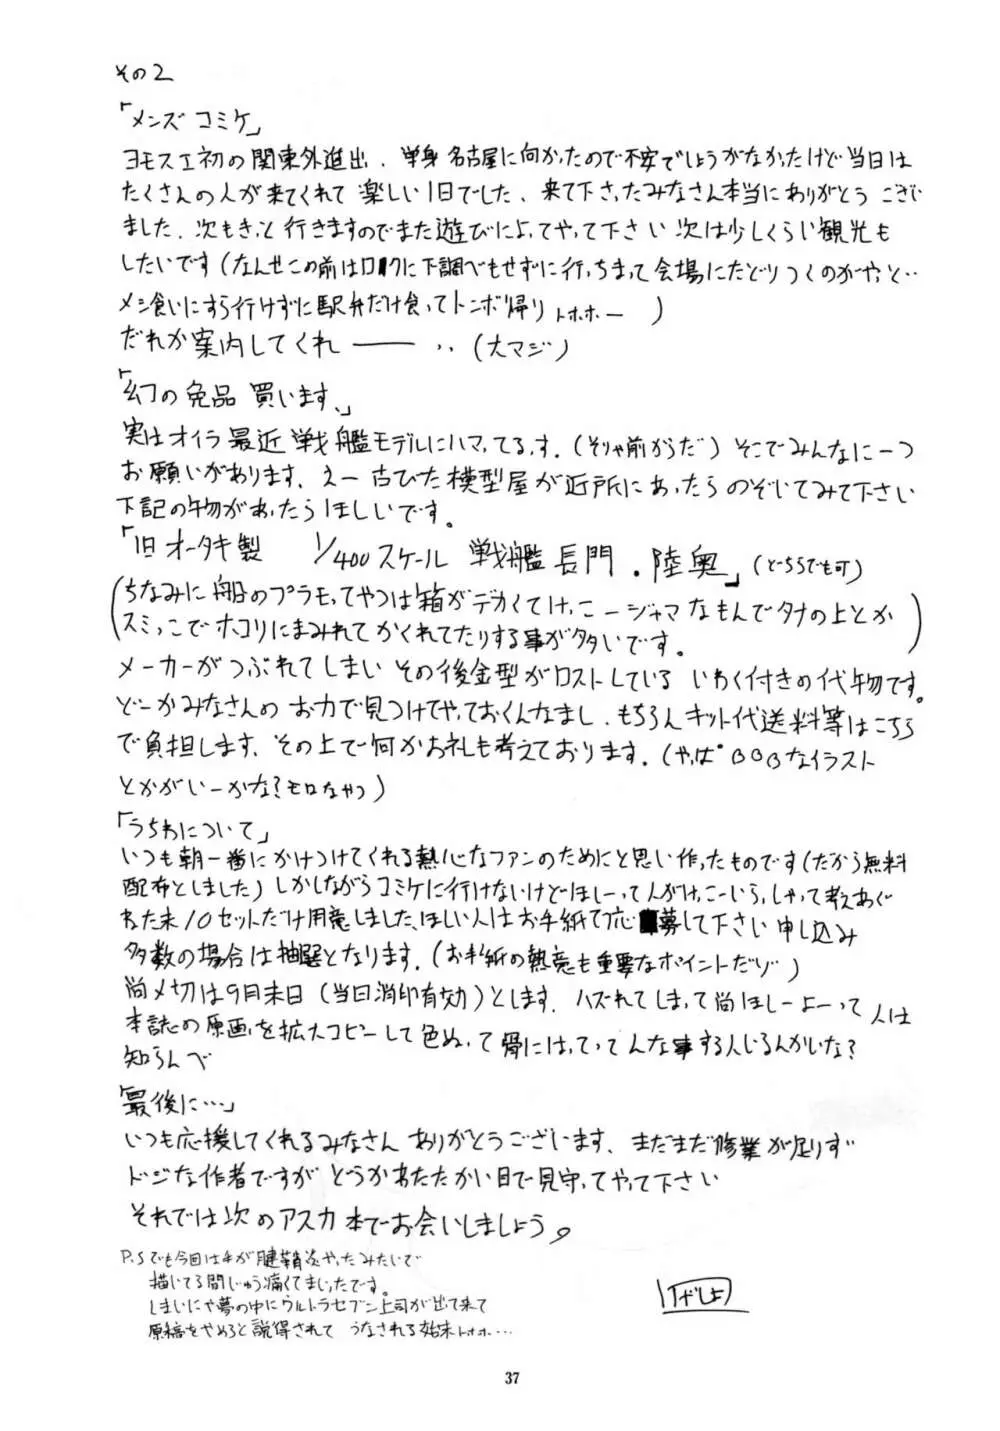 その2
「メンズコミケ」
ヨモスエ初の関東外進出、単身名古屋に向かったので不安でしょうがなかったけど当日は
たくさんの人が来てくれて楽しい1日でした、来て下さったみなさん本当にありがとうござい
ました、次もきっと行きますのでまた遊びによってやって下さい次は少しくらい観光も
したいです(なんせこの前はロクに下調べもせずに行っちまって会場にたどりつくのがやっと‥
メシ食いにすら行けずに駅弁だけ食ってトンボ帰りトホホー)
だれか案内してくれ――‥(大マジ)
「幻の免品買います、」
実はオイラ最近戦艦モデルにハマってるっす。(そりゃ前からだ)そこでみんなに一つ
お願いがあります、えー古びた模型屋が近所にあったらのぞいてみて下さい
下記の物があったらほしいです。
「旧オータキ製 1/400スケール 戦艦長門・陸奥」(どっちでも可)
(ちなみに船のプラモってやつは箱がデカくてけっこージャマなもんでタナの上とか
スミっこでホコリにまみれてかくれてたりする事が多いです。)
メーカーがつぶれてしまいその後金型がロストしているいわく付きの代物です。
どーかみなさんのお力で見つけてやっておくんなまし、もちろんキット代送料等はこちら
で負担します、その上で何かお礼も考えております。(やっぱBBBなイラスト
とかがいーかな?モロなやつ)
「うちわについて」
いつも朝一番にかけつけてくれる熱心なファンのためにと思い作ったものです(だから無料
配布としました)しかしながらコミケに行けないけどほしーって人がけっこーいらっしゃって考えあぐ
ねた末10セットだけ用意しました、ほしい人はお手紙で応募して下さい申し込み
多数の場合は抽選となります。(お手紙の熱意も重要なポイントだゾ)
尚〆切は9月末日(当日消印有効)とします、ハズれてしまって尚ほしーよーって人は
本誌の原画を拡大コピーして色ぬって骨にはってってんな事する人いるんかいな?
知らんべ
「最後に…」
いつも応援してくれるみなさんありがとうございます、まだまだ修業が足りず
ドジな作者ですがどうかあたたかい目で見守ってやって下さい
それでは次のアスカ本でお会いしましょう。
P.Sでも今回は手が腱鞘炎やったみたいで
描いてる間じゅう痛くてまいったです。
しまいにゃ夢の中にウルトラセブン上司が出て来て
原稿をやめろと説得されてうなされる始末トホホー…
37